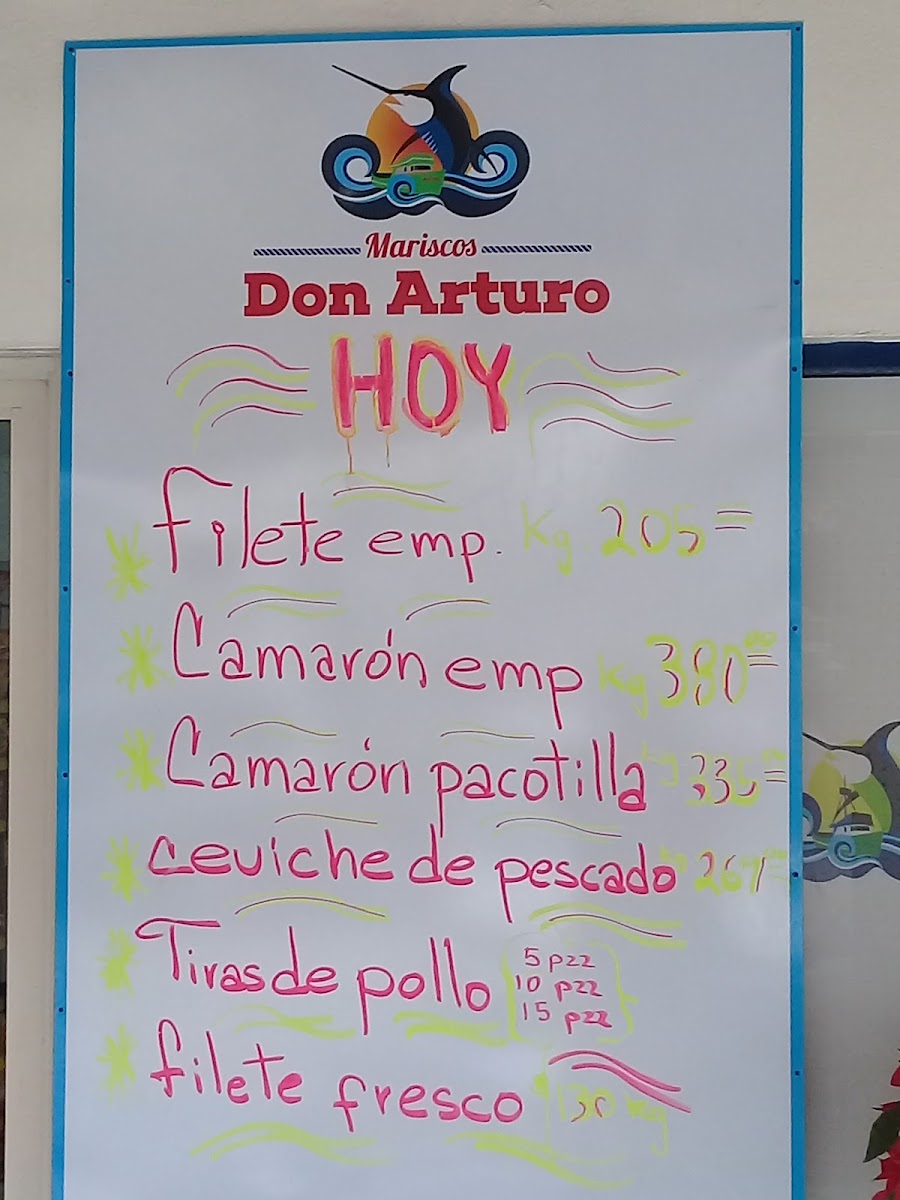 Mariscos
Don Arturo
HOY
Filete emp. Kg. 205=
Camarón emp Kg 380⁰⁰
Camarón pacotilla Kg 335
ceviche de pescado Kg
Tiras de pollo
5 pzz
10 pzz
15 pzz
filete fresco 130 Kg